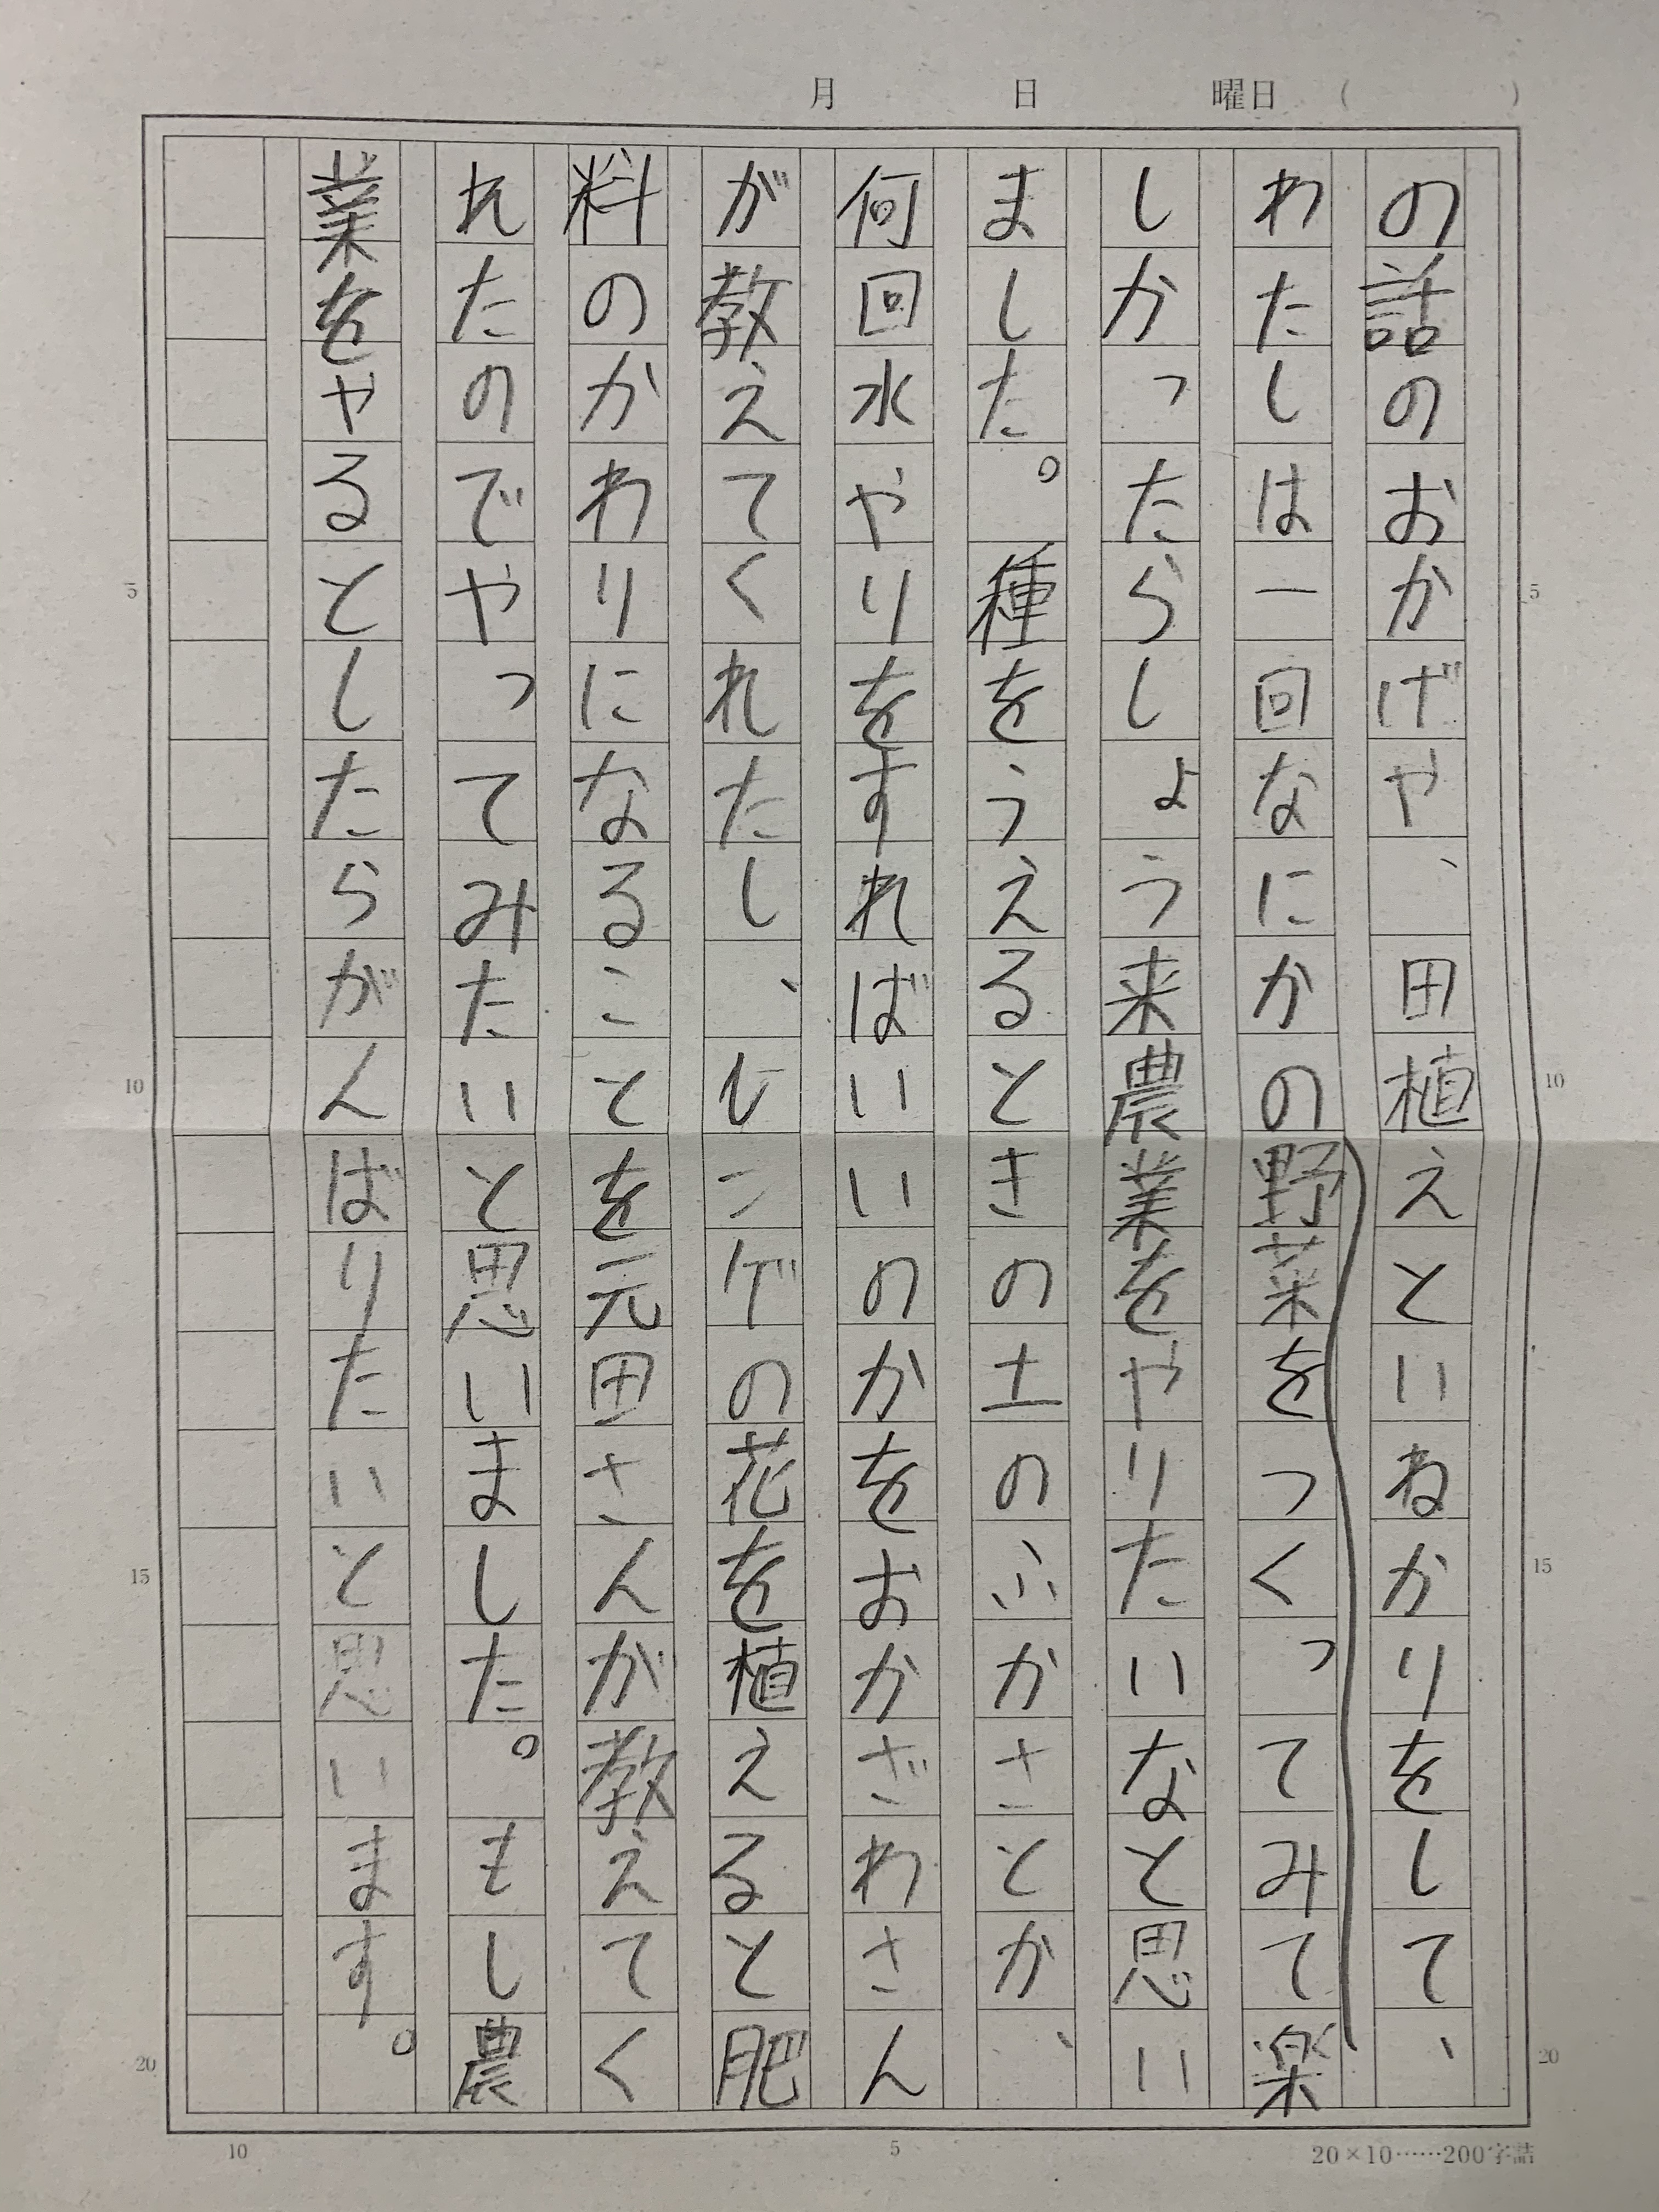 月 日 曜日 ( )
の話のおかげや、田植えといねかりをして、
わたしは一回なにかの野菜をつくってみて楽
しかったらしょう来農業をやりたいなと思い
ました。種をうえるときの土のふかさとか、
何回水やりをすればいいのかをおかざわさん
が教えてくれたし、レンゲの花を植えると肥
料のかわりになることを元田さんが教えてく
れたのでやってみたいと思いました。もし農
業をやるとしたらがんばりたいと思います。
5
10
15
20
5
10
15
20
10
5
20×10……200字詰